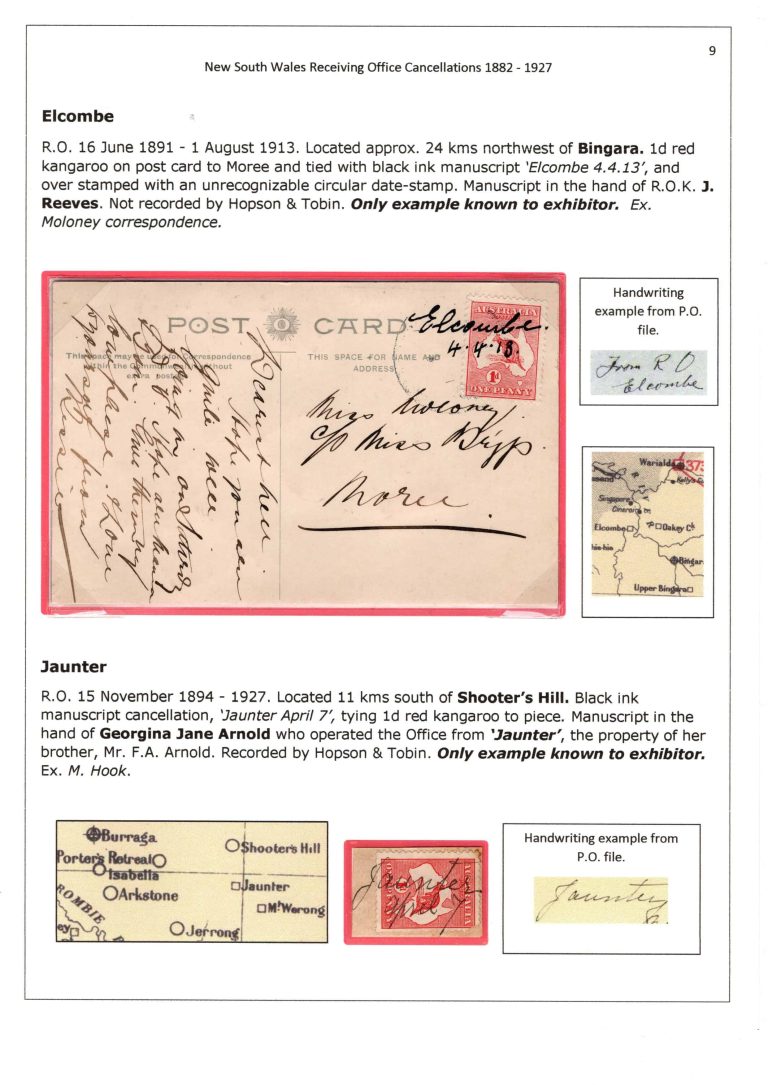 9
New South Wales Receiving Office Cancellations 1882 - 1927
Elcombe
R.O. 16 June 1891 - 1 August 1913. Located approx. 24 kms northwest of Bingara. 1d red
kangaroo on post card to Moree and tied with black ink manuscript ‘Elcombe 4.4.13’, and
over stamped with an unrecognizable circular date-stamp. Manuscript in the hand of R.O.K. J.
Reeves. Not recorded by Hopson & Tobin. Only example known to exhibitor. Ex.
Moloney correspondence.
POST CARD
This space may be used for Correspondence
within the Commonwealth without
extra postage
THIS SPACE FOR NAME AND
ADDRESS
AUSTRALIA
1D
ONE PENNY
Elcombe.
4.4.13.
Miss Moloney
c/o Miss
Moree
Dearest
Hope you are
quite well
on Saturday
Hope
Love
from
Handwriting
example from P.O.
file.
From R O
Elcombe
Warialda
373
Kelly's
Singapore
Elcombe
Oakey Ck
Bingar
Upper Bingara
Jaunter
R.O. 15 November 1894 - 1927. Located 11 kms south of Shooter’s Hill. Black ink
manuscript cancellation, ‘Jaunter April 7’, tying 1d red kangaroo to piece. Manuscript in the
hand of Georgina Jane Arnold who operated the Office from ‘Jaunter’, the property of her
brother, Mr. F.A. Arnold. Recorded by Hopson & Tobin. Only example known to exhibitor.
Ex. M. Hook.
Burraga
Shooter's Hill
Porter's Retreat
Isabella
Jaunter
Arkstone
Mt Werong
Jerrong
ROMBIE
ey
Jaunter
April 7
Handwriting example from
P.O. file.
Jaunter